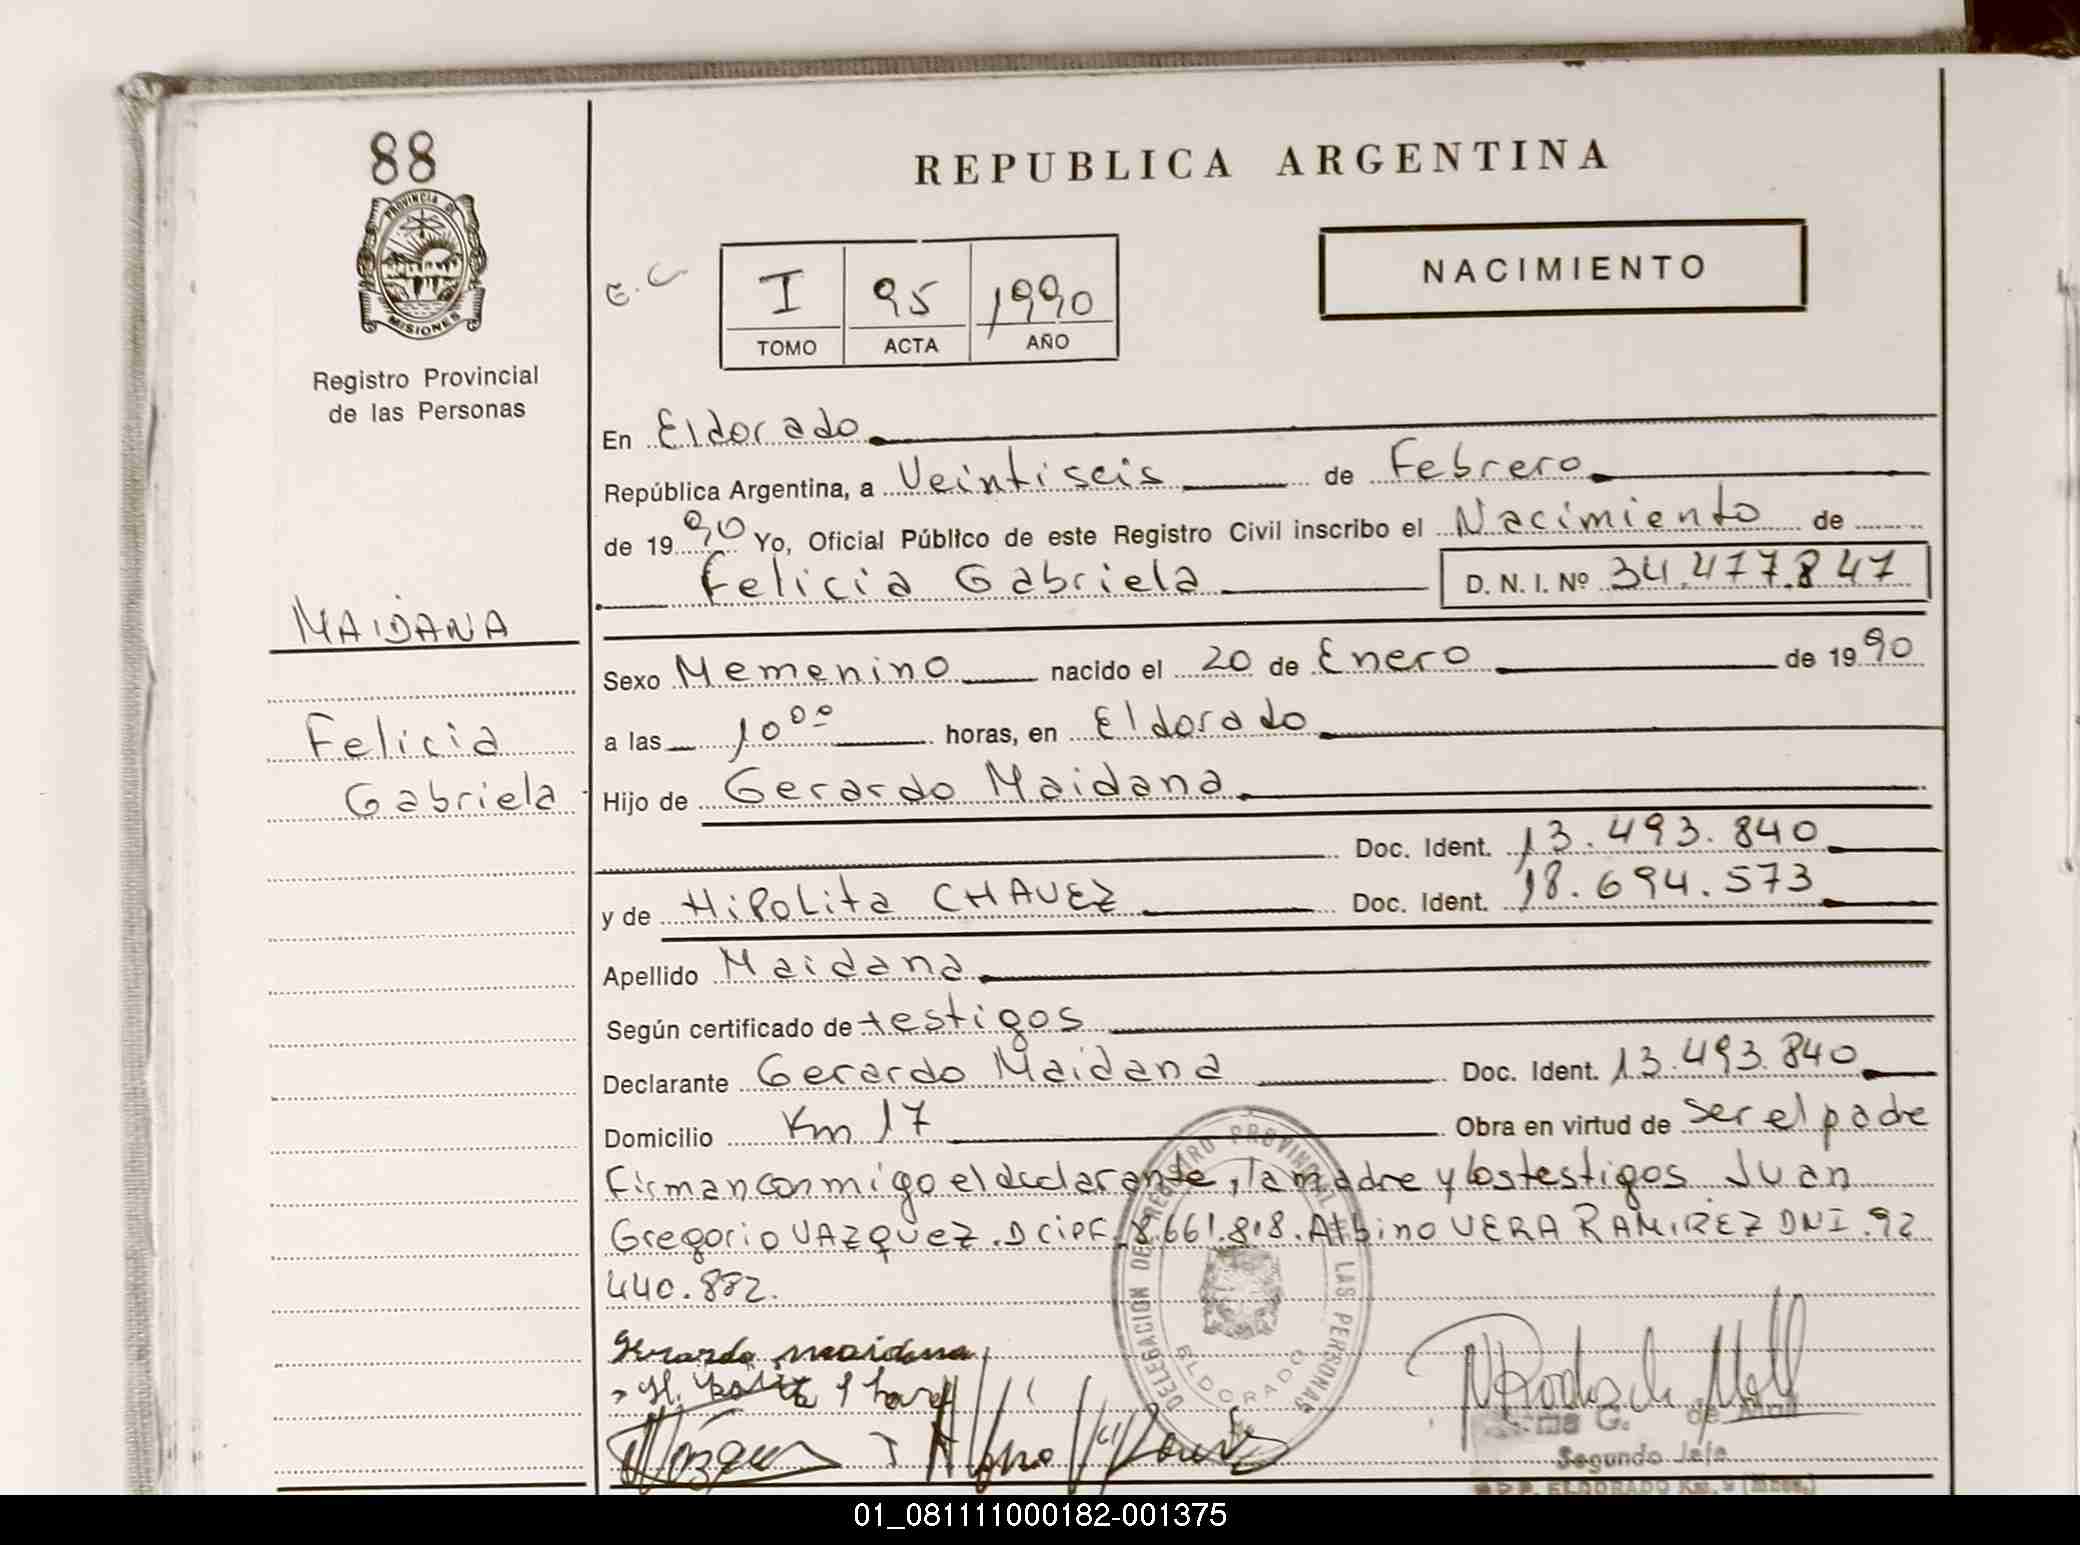 88
PROVINCIA DE
MISIONES
Registro Provincial
de las Personas
MAIDANA
Felicia
Gabriela
REPUBLICA ARGENTINA
E.C
I 95 1990
TOMO ACTA AÑO
NACIMIENTO
En Eldorado
República Argentina, a Veintiseis de Febrero
de 1990 Yo, Oficial Público de este Registro Civil inscribo el Nacimiento de
Felicia Gabriela D. N. I. Nº 34.477.847
Sexo Memenino nacido el 20 de Enero de 1990
a las 10 00 horas, en Eldorado
Hijo de Gerardo Maidana
Doc. Ident. 13.493.840
y de HiPoLita CHAVEZ Doc. Ident. 18.694.573
Apellido Maidana
Según certificado de testigos
Declarante Gerardo Maidana Doc. Ident. 13.493.840
Domicilio Km 17 Obra en virtud de ser el padre
Firman conmigo el declarante, la madre y los testigos Juan
Gregorio VAZQUEZ. D CIPF. 8.661.818. Albino VERA RAMIREZ DNI. 92
440.882.
DELEGACION DEL REGISTRO PROVINCIAL DE LAS PERSONAS
ELDORADO
Gerardo maidana
G. de Moll
Segundo Jefe
ELDORADO Km. 9 (Mnes.)
01_081111000182-001375